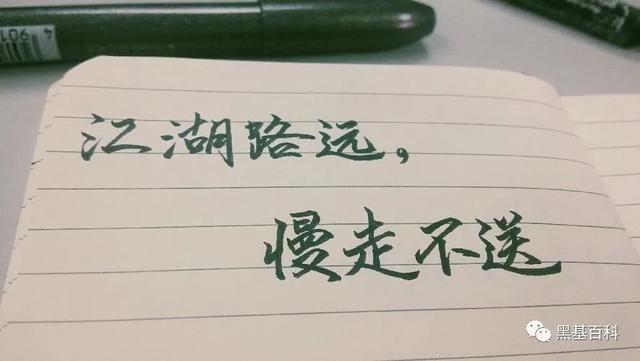 江湖路远，
慢走不送
4 901
黑基百科